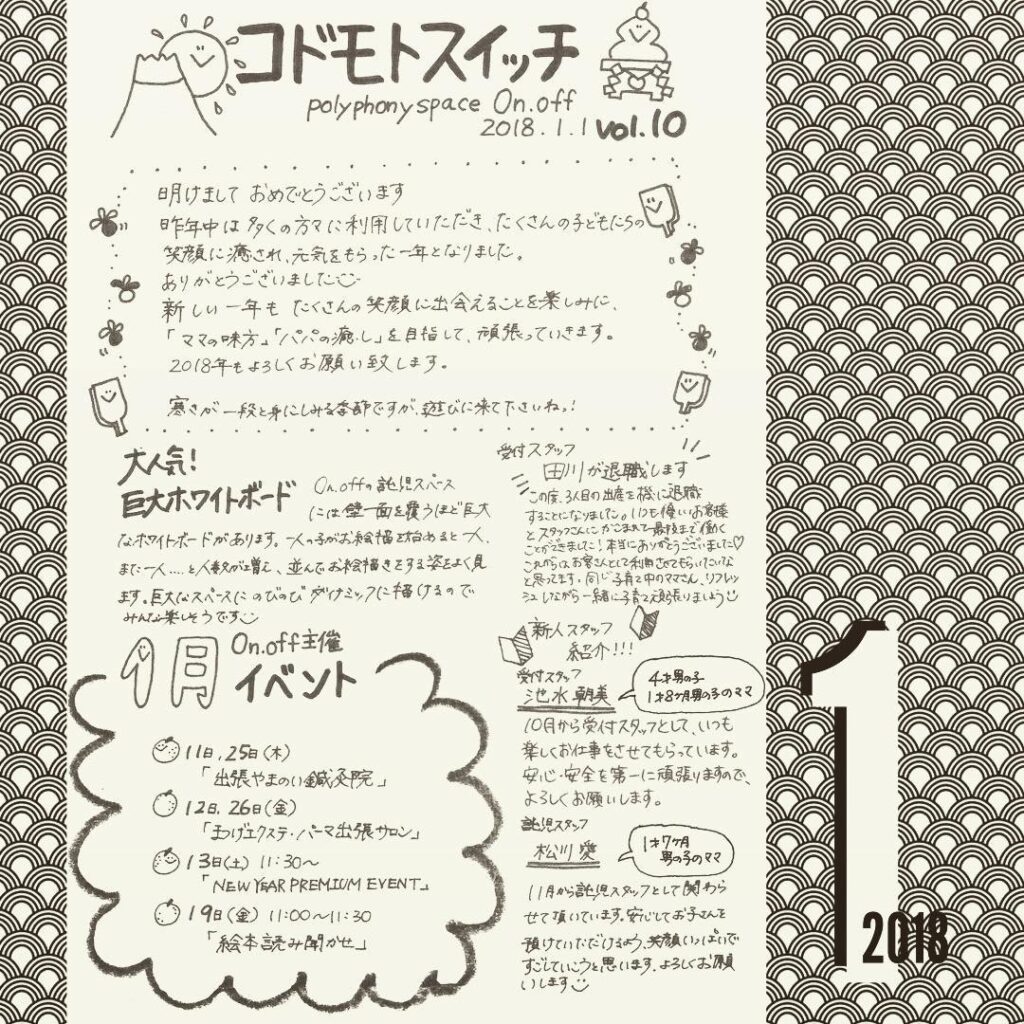 コドモトスイッチ
polyphony space On.off
2018.1.1 vol.10
明けまして おめでとうございます
昨年中は多くの方々に利用していただき、たくさんの子どもたちの
笑顔に癒され、元気をもらった一年となりました。
ありがとうございました
新しい一年も たくさんの笑顔に出会えることを楽しみに、
「ママの味方」「パパの癒し」を目指して、頑張っていきます。
2018年もよろしくお願い致します。
寒さが一段と身にしみる季節ですが、遊びに来て下さいねっ!
大人気!
巨大ホワイトボード
On.offの託児スペース
には壁一面を覆うほど巨大
なホワイトボードがあります。一人の子がお絵描を始めると一人、
また一人....と人数が増え、並んでお絵描きをする姿をよく見
ます。巨大なスペースにのびのびダイナミックに描けるので
みんな楽しそうです
受付スタッフ
田川が退職します
この度、3人目の出産を機に退職
することになりました。いつも優しいお客様
とスタッフさんにかこまれて最後まで働く
ことができました!本当にありがとうございました♡
これからはお客さんとして利用させてもらいたいな
と思ってます。同じ子育て中のママさん、リフレッ
シュしながら一緒に子育て頑張りましょう
新人スタッフ
紹介!!!
受付スタッフ
池水 朝美
4才男の子
1才8ヶ月男の子のママ
10月から受付スタッフとして、いつも
楽しくお仕事をさせてもらっています。
安心・安全を第一に頑張りますので、
よろしくお願いします。
託児スタッフ
松川 愛
1才7ヶ月
男の子のママ
11月から託児スタッフとして関わら
せて頂いています。安心してお子さんを
預けていただけるよう、笑顔いっぱいで
すごしていこうと思います。よろしくお願
いします
1月
On.off主催
イベント
11日、25日(木)
「出張やまのい鍼灸院」
12日、26日(金)
「まつげエクステ・パーマ出張サロン」
13日(土) 11:30～
「NEW YEAR PREMIUM EVENT」
19日(金) 11:00～11:30
「絵本読み聞かせ」
1
2018